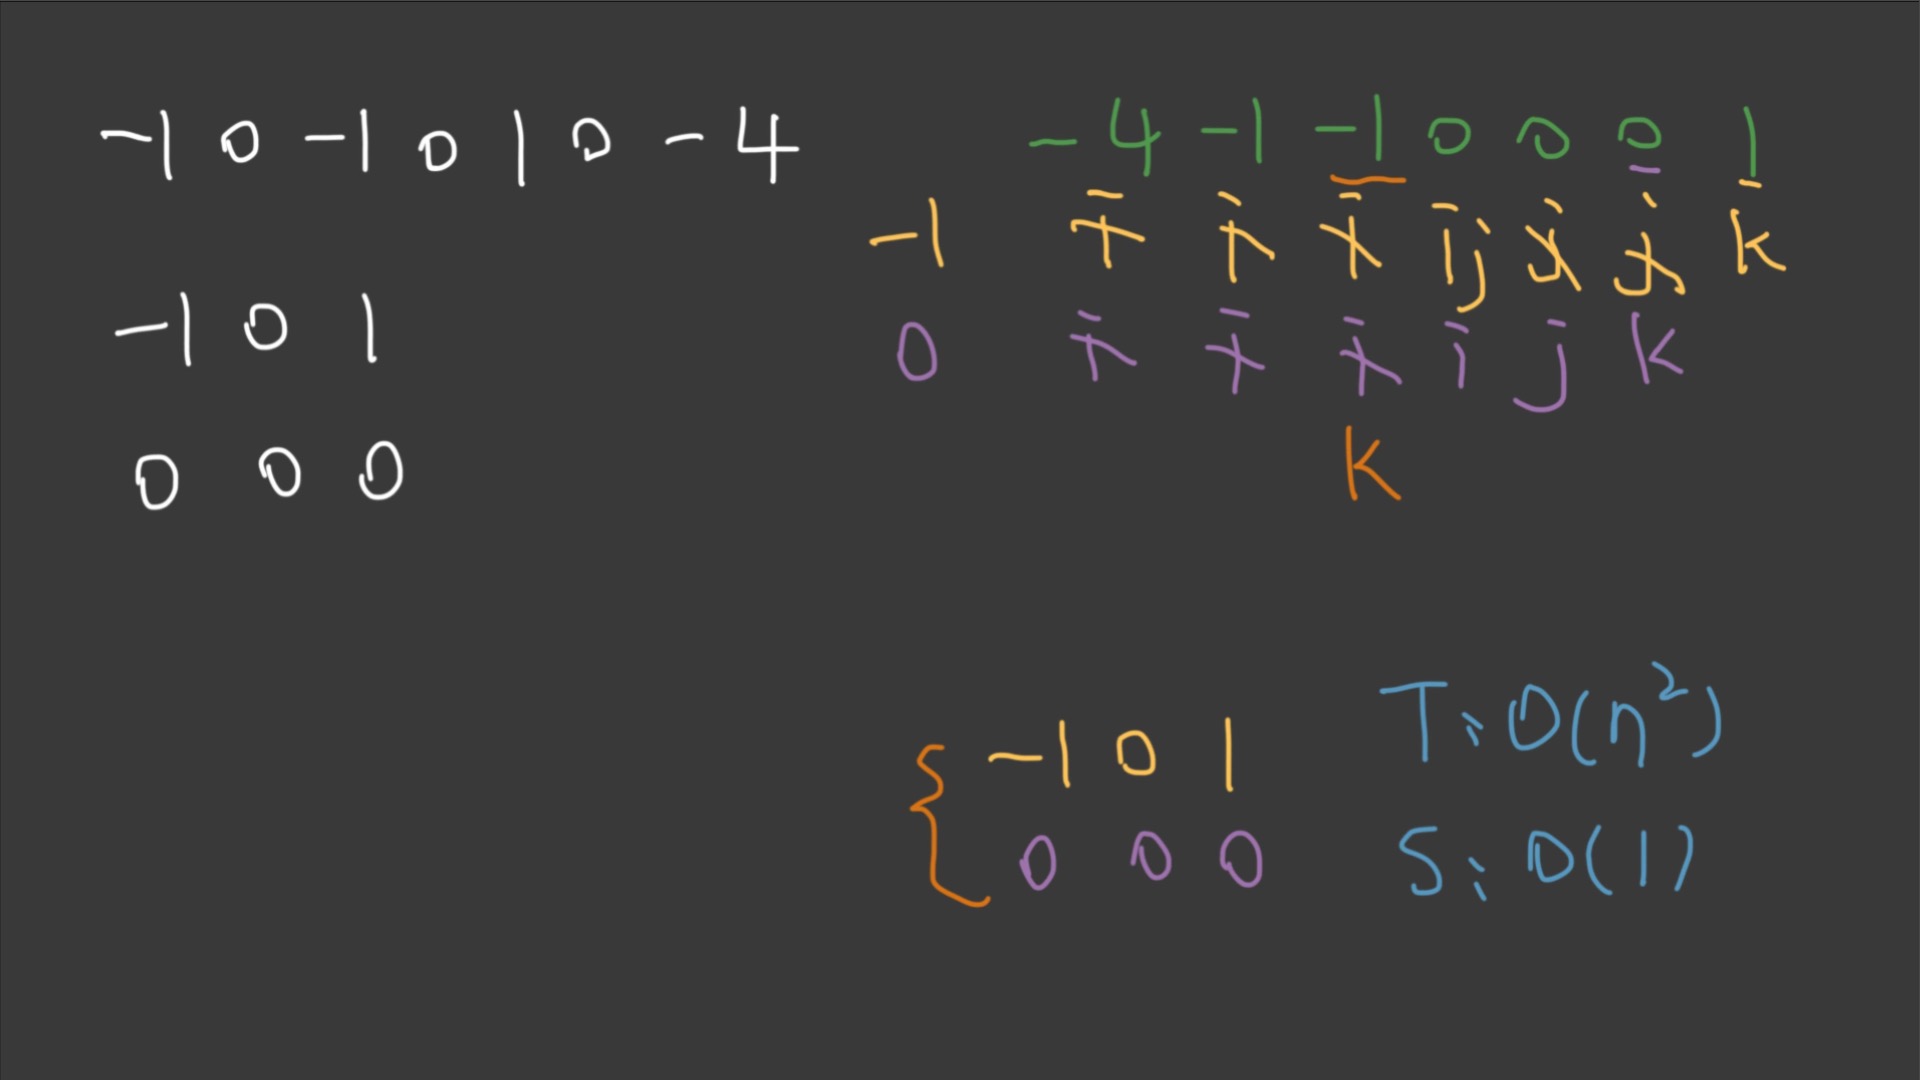 -1 0 -1 0 1 0 -4
-1 0 1
0 0 0
-4 -1 -1 0 0 0 1
-1 i i i i j j j k
0 i i i i j k
k
-1 0 1
0 0 0
T: O(n²)
S: O(1)